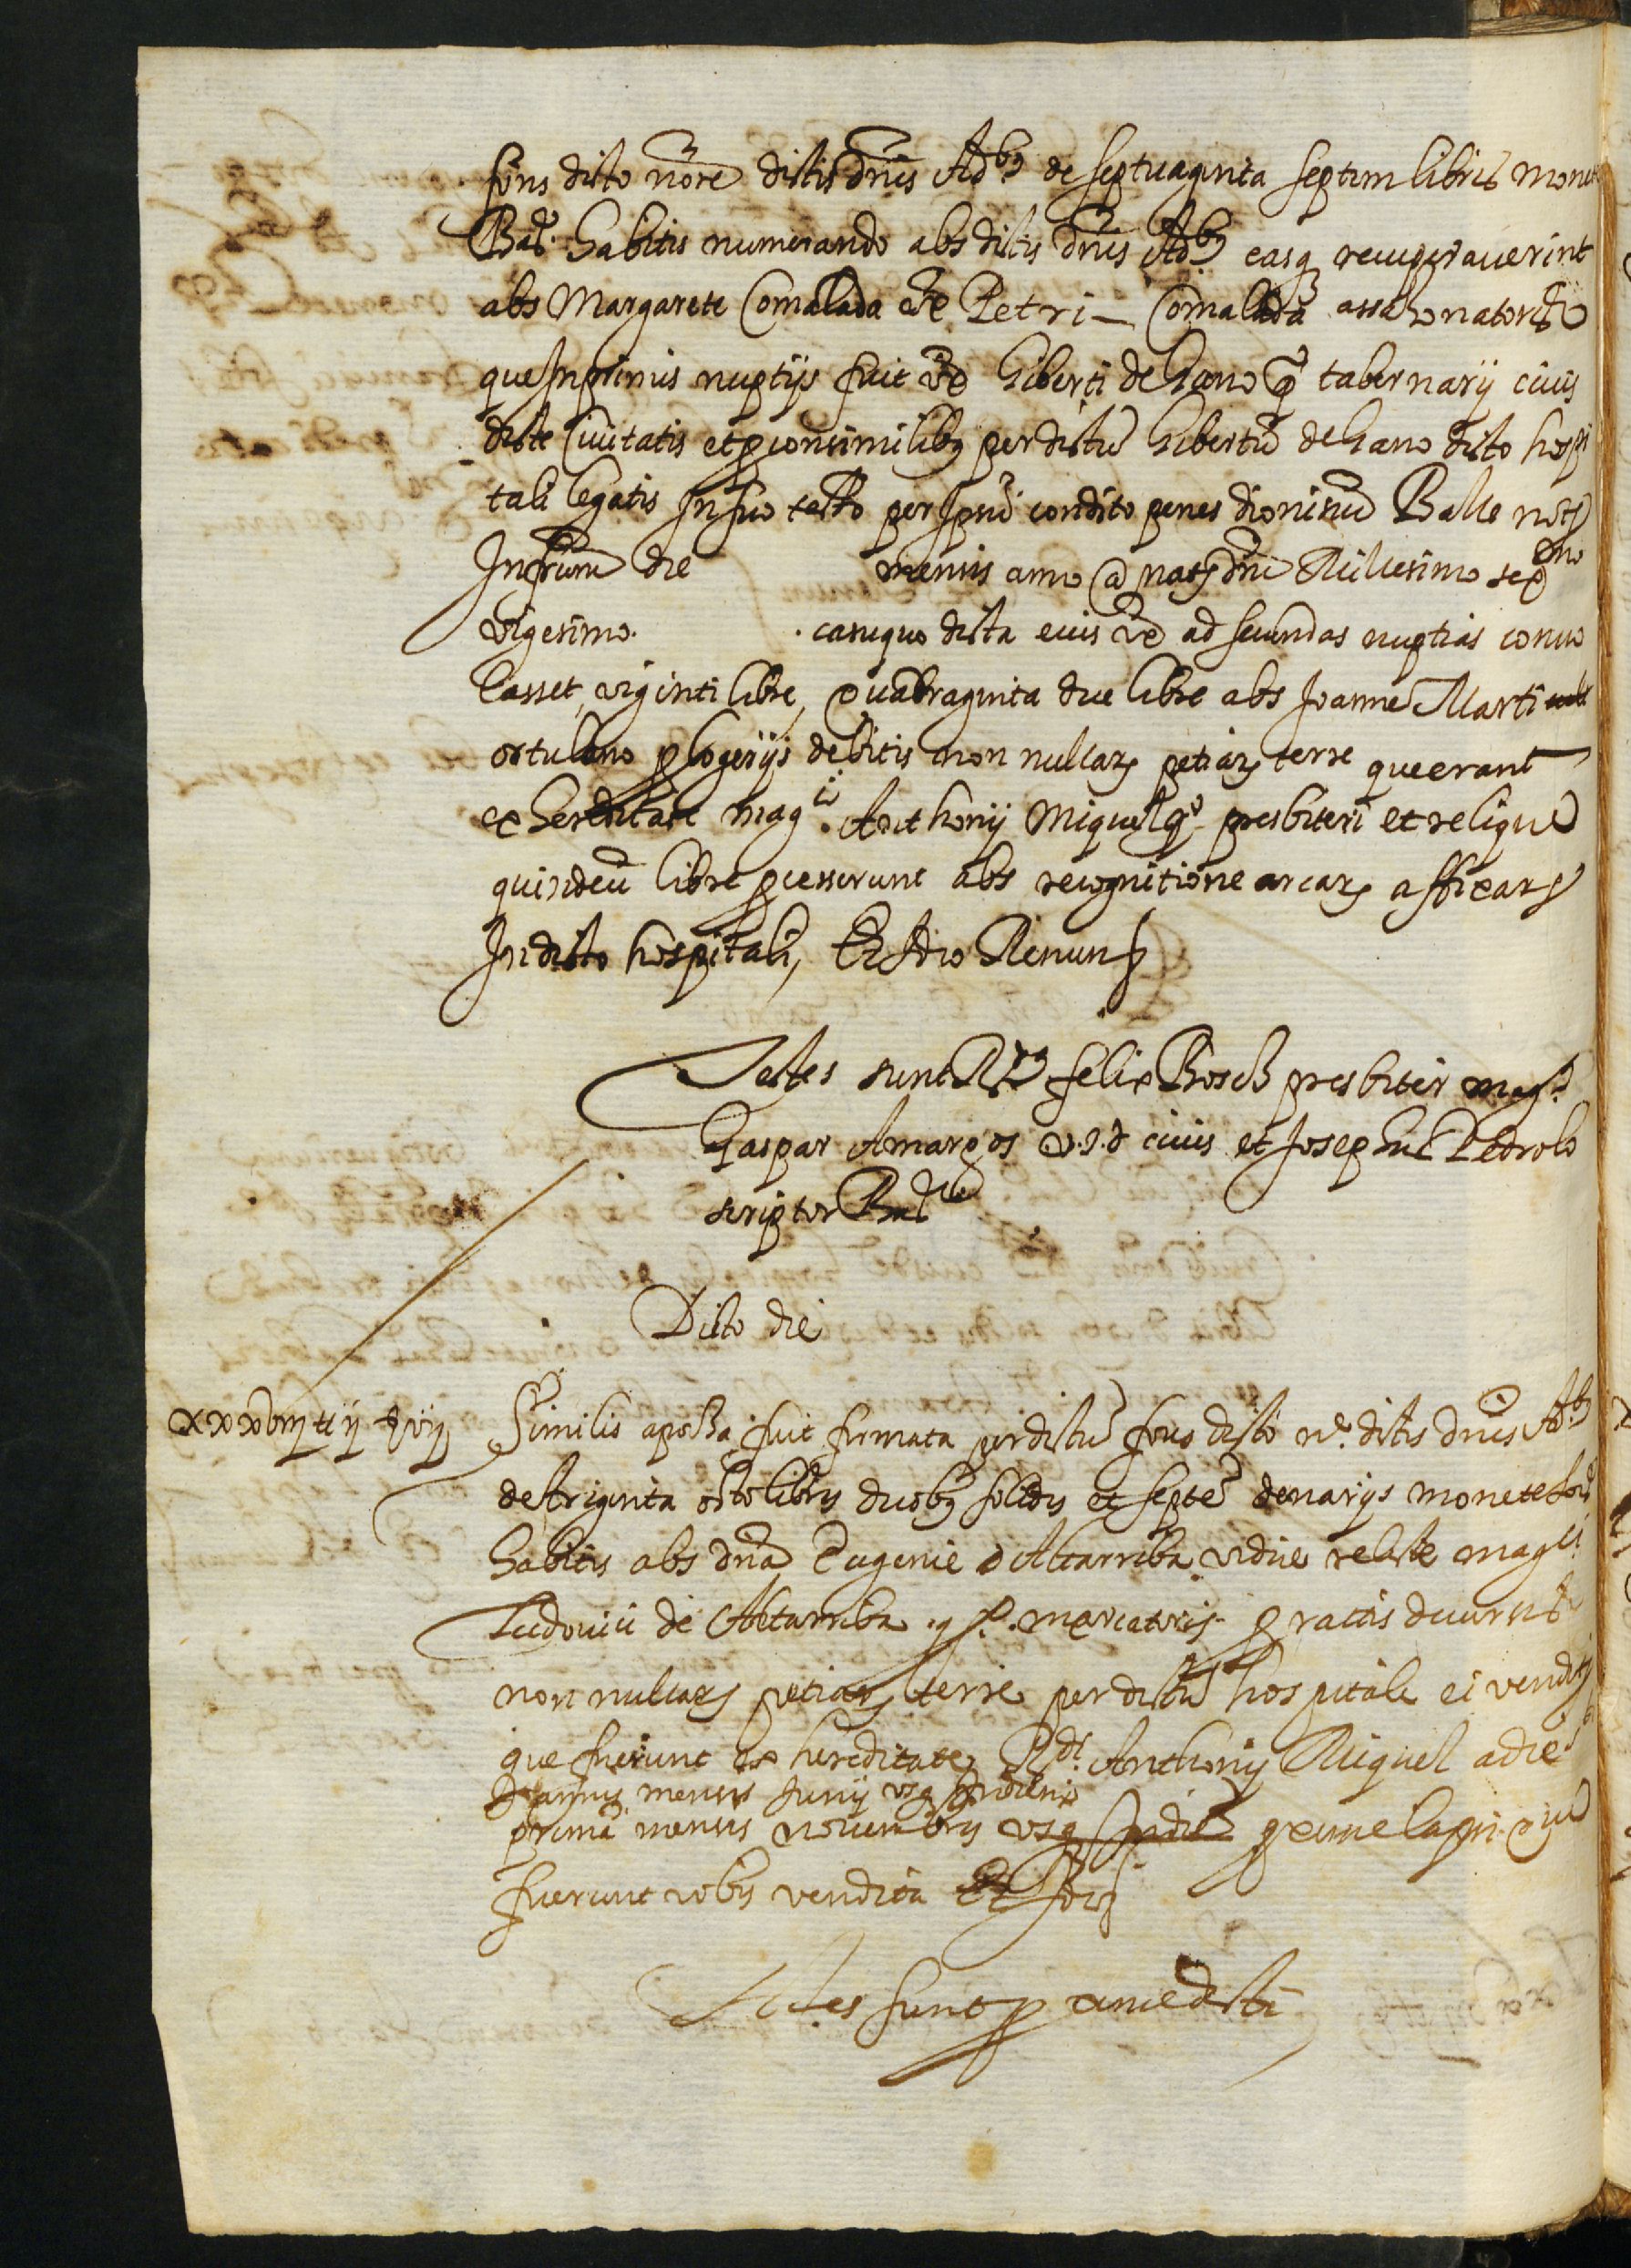 fons dicto nore dictis dnis Adb9 de septuaginta septem libris monete
habitis numerando abs dictis dnis Adb9 easq recuperaverint
abs Margarete Comalada Petri – Comalada assahonatoris
que In primis nuptijs fuit Giberti de Gano q tabernarij civis
dicte Civitatis et p consimilib9 per dictu Gibertu de Gano dicto hospi
tali legatis In suo testo per Ipsu condito penes dionisiu Balle
die mensis anno a nat dni Millesimo
vigesimo. casuquo dicta eius ad secundas nuptias convo
lasset, viginti libre, Quadraginta due libre abs Joanne Marti
ortulano p logerijs debitis non nullar petiar terre que erant
ex hereditate magci Anthonij Miquel q presbiteri et relique
quindecim libre processerunt abs recognitione arcar affixar
In dicto hospitali, Et Ideo Renun
Testes sunt Rd felix Bosch presbiter magcs
Gaspar Amargos v.J.d civis et Josephus Pedrolo
scriptor
Dicto die
xxxviij ℔ ij § vij Similis apocha fuit firmata per dictu fons dicto ne. dictis dnis Adb9
de triginta octo libris duob9 solidis et septe denarijs monete
habitis abs dna Eugenie d Altarriba vidue relicte magci
Ludovici de Altarriba q mercatoris p ratis decursis
non nullar petiar terre per dictu hospitale ei vendit
que fuerunt ex hereditate Rdi Anthonij Miquel a die
Joannis mensis Junij usq
prima mensis novembris usq
fuerunt vobis vendita Et Ideo
Testes sunt p ximedicti